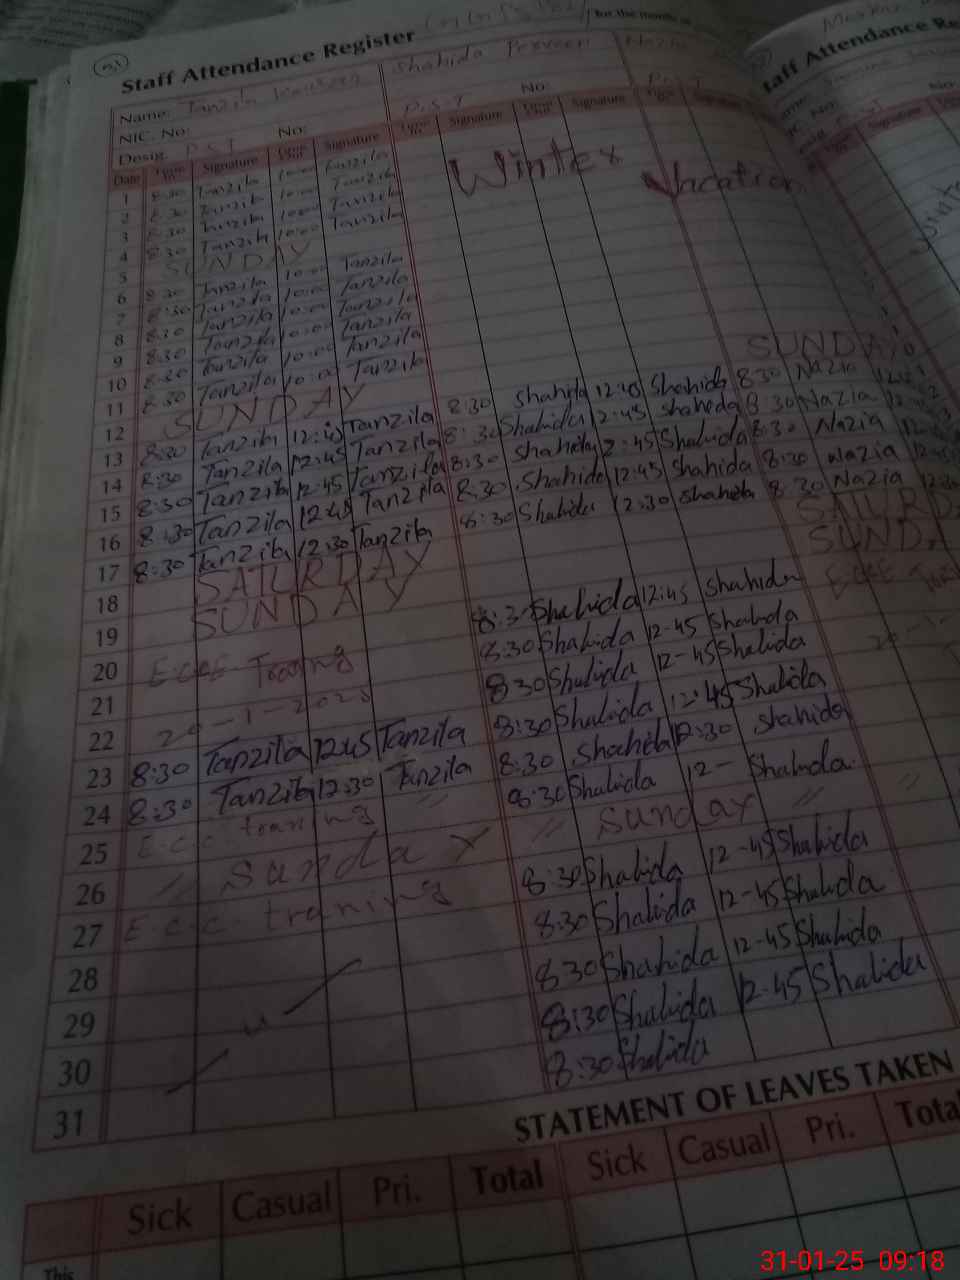 Staff Attendance Register
for the month of
Staff Attendance Re
Name: Tanzila Kousar Shahida Parveen Nazia
NIC. No: No: No:
Desig. P.S.T P.S.T P.S.T
Date Time In Signature Time Out Signature Time In Signature Time Out Signature Time In Signature
1 8:30 Tanzila 10:00 Tanzila Winter Vacation
2 8:30 Tanzila 10:00 Tanzila
3 8:30 Tanzila 10:00 Tanzila
4 8:30 Tanzila 10:00 Tanzila
5 SUNDAY
6 8:30 Tanzila 10:00 Tanzila
7 8:30 Tanzila 10:00 Tanzila
8 8:30 Tanzila 10:00 Tanzila
9 8:30 Tanzila 10:00 Tanzila
10 8:30 Tanzila 10:00 Tanzila
11 8:30 Tanzila 10:00 Tanzila
12 SUNDAY SUNDAY
13 8:30 Tanzila 12:45 Tanzila 8:30 Shahida 12:45 Shahida 8:30 Nazia
14 8:30 Tanzila 12:45 Tanzila 8:30 Shahida 12:45 Shaheda 8:30 Nazia
15 8:30 Tanzila 12:45 Tanzila 8:30 Shahida 12:45 Shahida 8:30 Nazia
16 8:30 Tanzila 12:45 Tanzila 8:30 Shahida 12:45 Shahida 8:30 Nazia
17 8:30 Tanzila 12:30 Tanzila 8:30 Shahida 12:30 Shahida 8:30 Nazia
18 SATURDAY SATURD
19 SUNDAY SUNDA
20 E.C.C.E 8:30 Shahida 12:45 Shahida
21 8:30 Shahida 12-45 Shahida
22 20-1-2025 8:30 Shahida 12-45 Shahida
23 8:30 Tanzila 12:45 Tanzila 8:30 Shahida 12:45 Shahida
24 8:30 Tanzila 12:30 Tanzila 8:30 Shahida 12:30 Shahida
25 E.c.c. traning 8:30 Shahida 12- Shahida
26 " Sunday " " Sunday " "
27 E.c.c. traning 8:30 Shahida 12-45 Shahida
28 8:30 Shahida 12-45 Shahida
29 8:30 Shahida 12-45 Shahida
30 8:30 Shahida 12-45 Shahida
31 8:30 Shahida
STATEMENT OF LEAVES TAKEN
Sick Casual Pri. Total Sick Casual Pri. Total
This
31-01-25 09:18